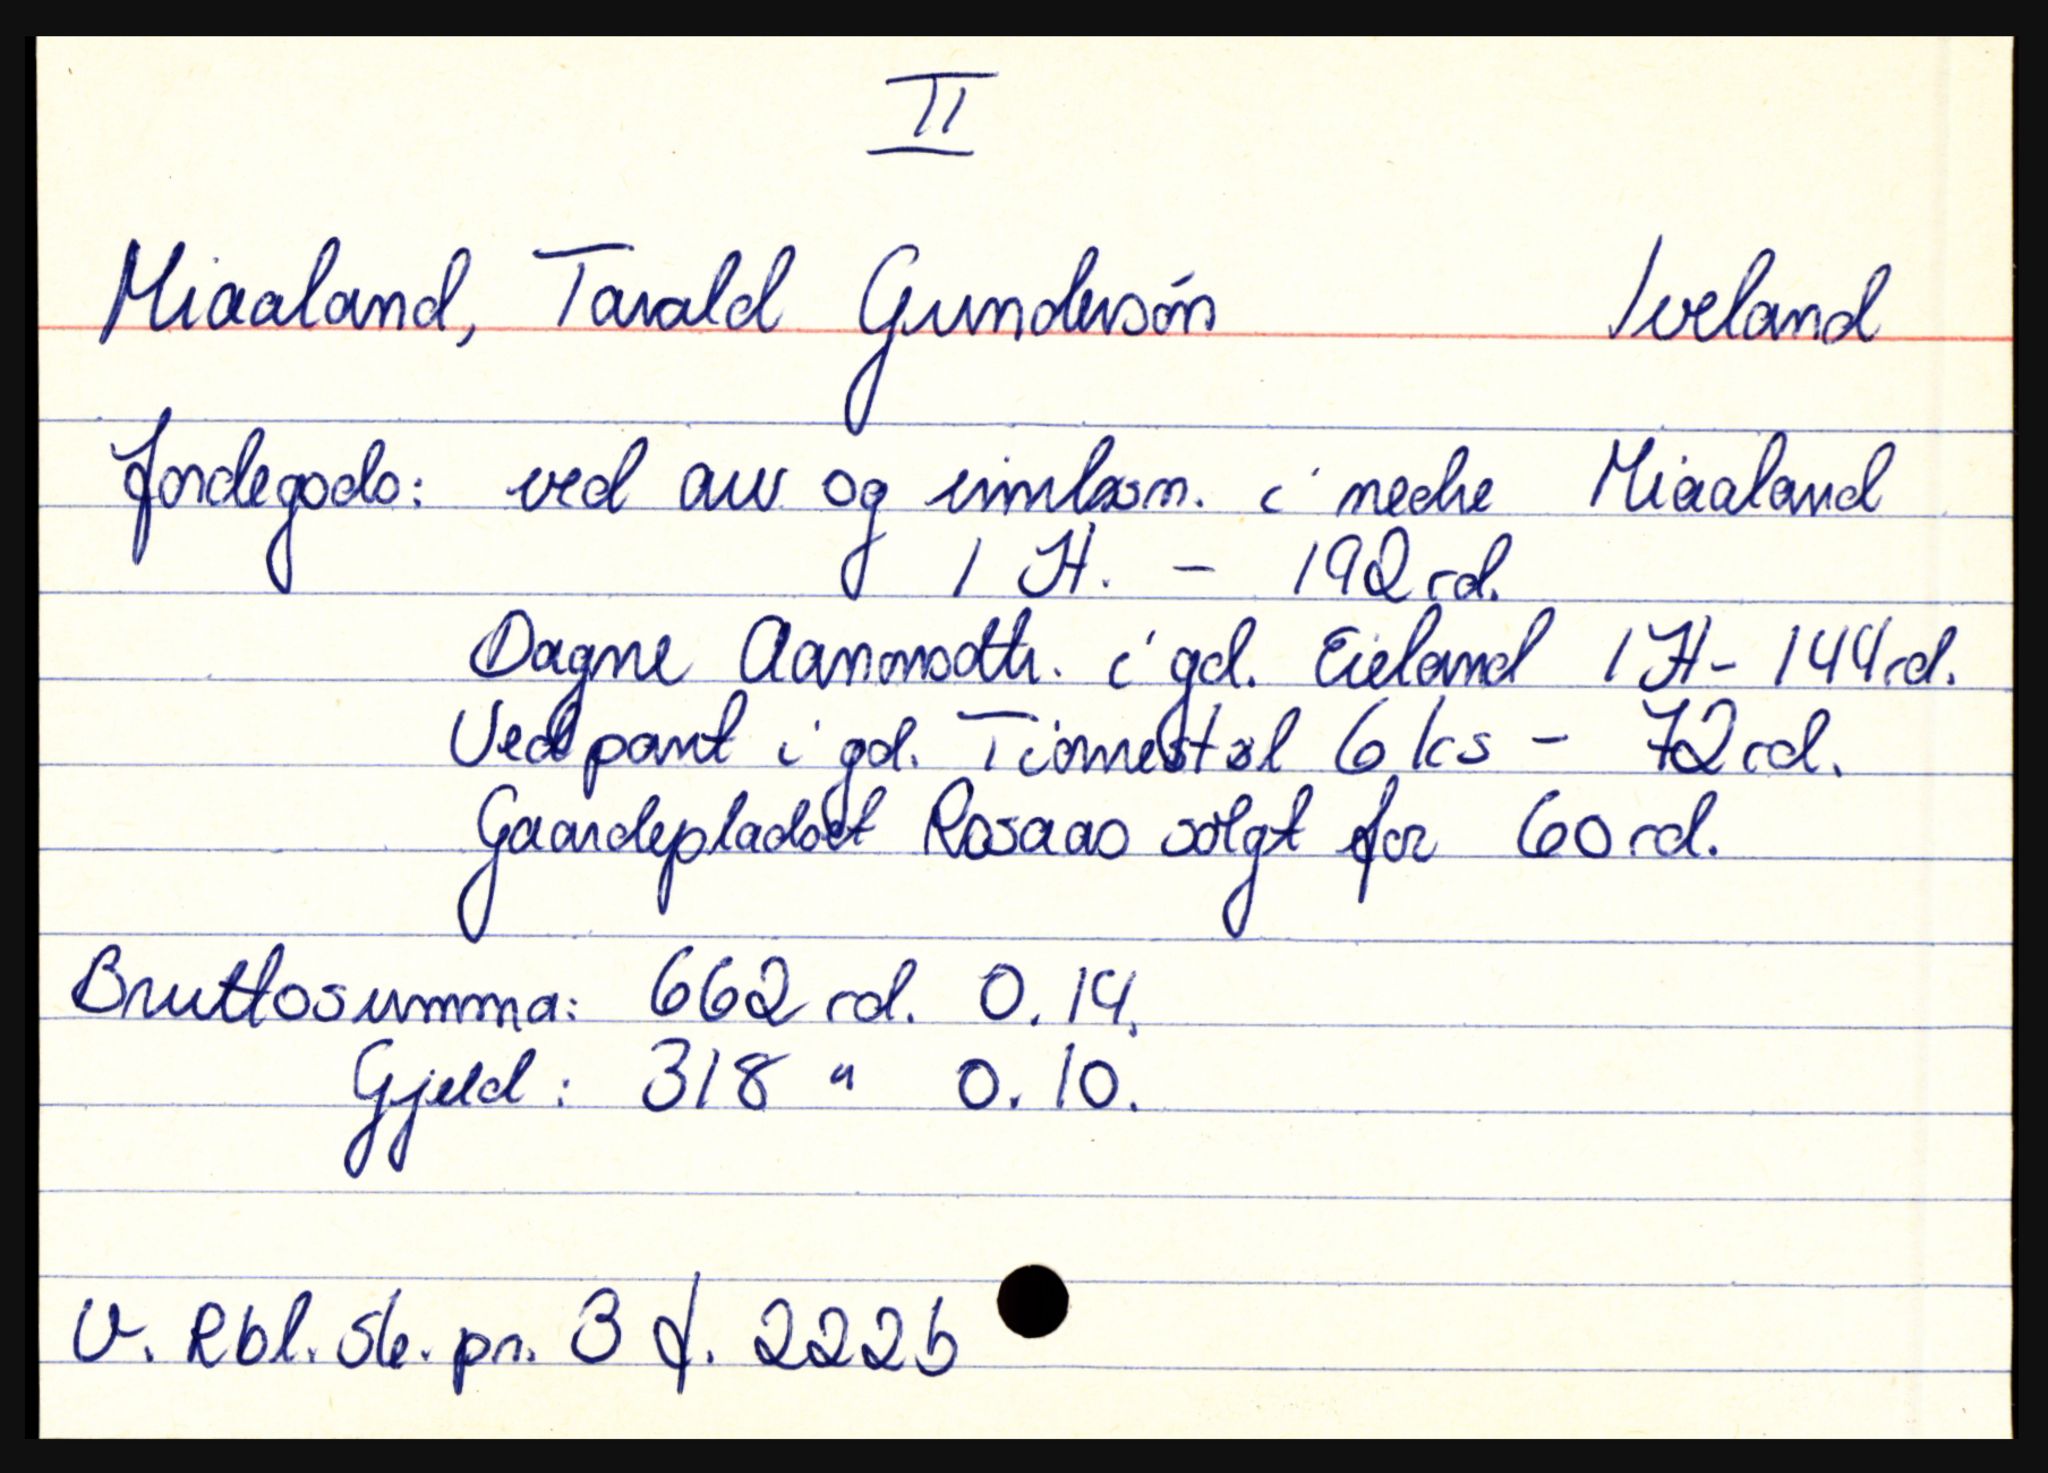 II
Miaaland, Tarald Gundersøn Iveland
Jordegods: ved arv og innløsn. i nedre Miaaland
1 H. - 192 rd.
Dagne Aanonsdtr. i gd. Eieland 1 H - 144 rd.
Ved pant i gd. Tiomestøl 6 ks - 72 rd.
Gaardepladset Rosaas solgt for 60 rd.
Bruttosumma: 662 rd. 0. 14.
Gjeld: 318 " 0. 10.
V. Rbl. Sk. pr. 3 f. 222b